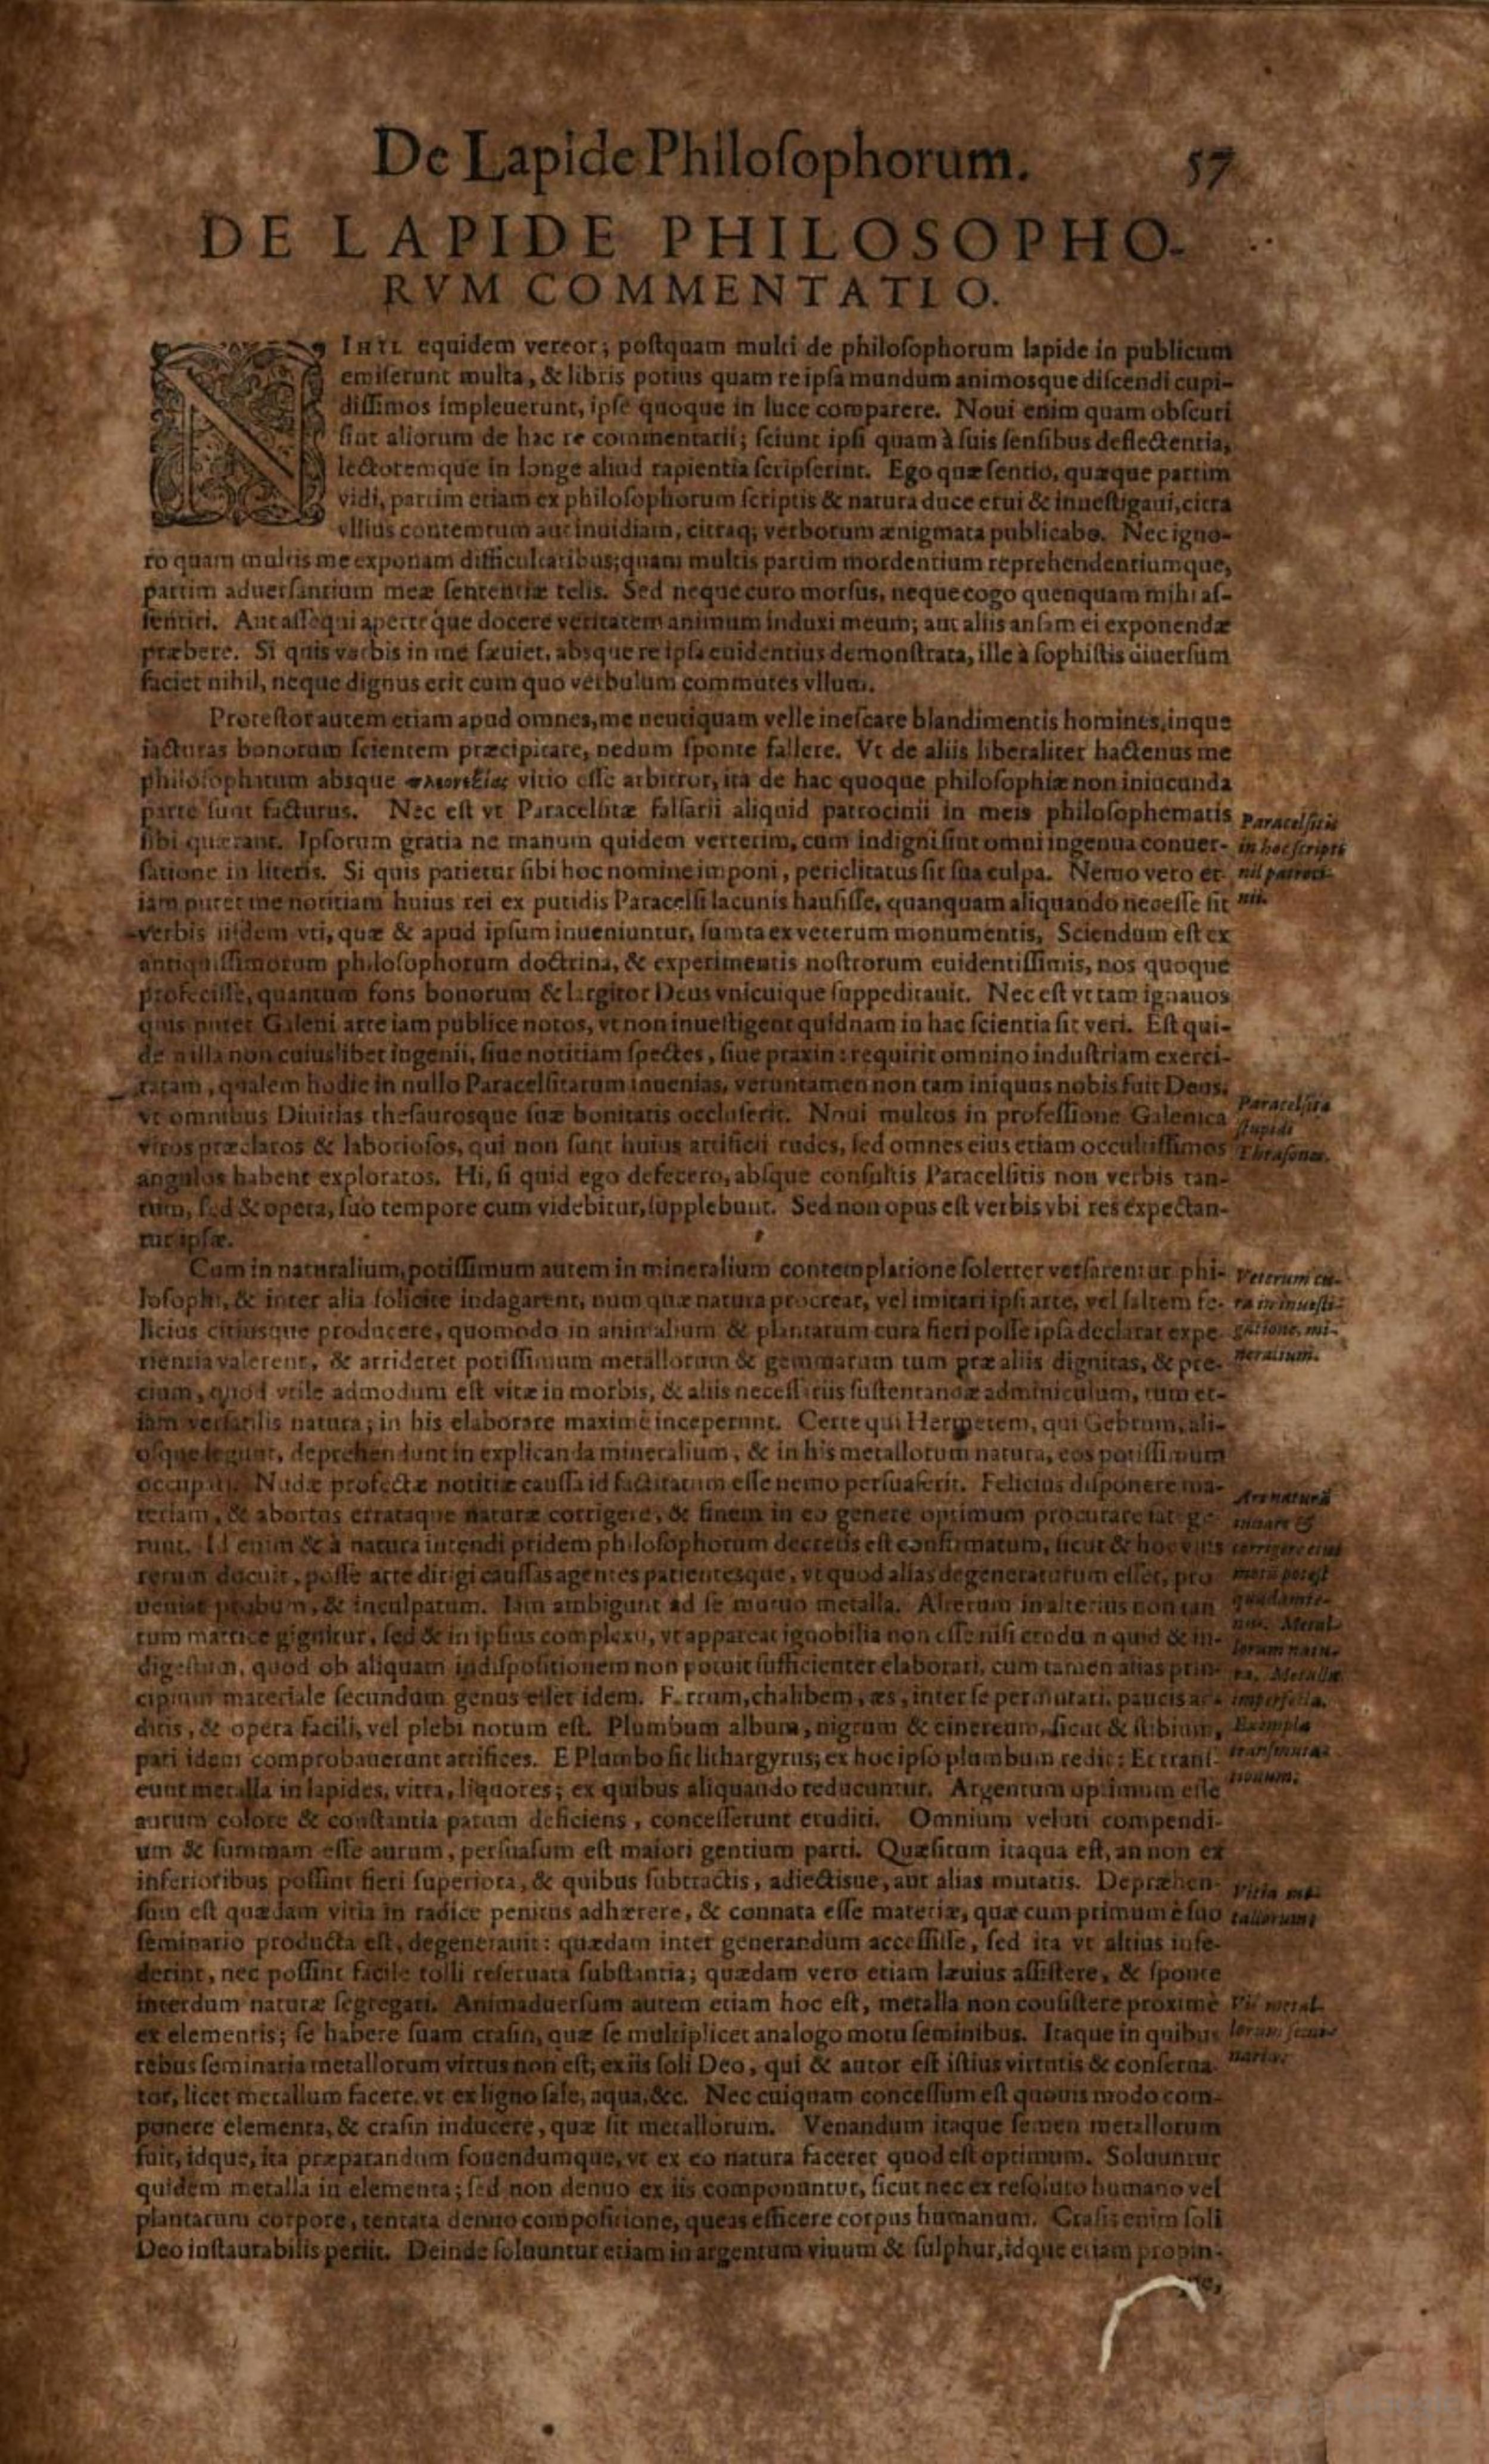 De Lapide Philoſophorum. 57
DE LAPIDE PHILOSOPHO-
RVM COMMENTATIO.
NIHIL equidem vereor; poſtquam multi de philoſophorum lapide in publicum
emiſerunt multa, & libris potius quam re ipſa mundum animosque diſcendi cupi-
diſſimos impleuerunt, ipſe quoque in luce comparere. Noui enim quam obſcuri
ſint aliorum de hac re commentarii; ſciunt ipſi quam à ſuis ſenſibus deflectentia,
lectoremque in longe aliud rapientia ſcripſerint. Ego quæ ſentio, quæque partim
vidi, partim etiam ex philoſophorum ſcriptis & natura duce erui & inueſtigaui, citra
vllius contemtum aut inuidiam, citraq; verborum ænigmata publicabo. Nec igno-
ro quam multis me exponam difficultatibus; quam multis partim mordentium reprehendentiumque,
partim aduerſantium meæ ſententiæ telis. Sed neque curo morſus, neque cogo quenquam mihi aſ-
ſentiri. Aut aſſequi aperteque docere veritatem animum induxi meum; aut aliis anſam ei exponendæ
præbere. Si quis verbis in me ſæuiet, absque re ipſa euidentius demonſtrata, ille à ſophiſtis diuerſum
faciet nihil, neque dignus erit cum quo verbulum commutes vllum.
Proteſtor autem etiam apud omnes, me neutiquam velle ineſcare blandimentis homines, inque
iacturas bonorum ſcientem præcipitare, nedum ſponte fallere. Vt de aliis liberaliter hactenus me
philoſophatum absque vitio eſſe arbitror, ita de hac quoque philoſophiæ non iniucunda
parte ſum facturus. Nec eſt vt Paracelſitæ falſarii aliquid patrocinii in meis philoſophematis
ſibi quærant. Ipſorum gratia ne manum quidem verterim, cum indigni ſint omni ingenua conuer-
ſatione in literis. Si quis patietur ſibi hoc nomine imponi, periclitatus ſit ſua culpa. Nemo vero et-
iam putet me notitiam huius rei ex putidis Paracelſi lacunis hauſiſſe, quanquam aliquando neceſſe ſit
verbis iiſdem vti, quæ & apud ipſum inueniuntur, ſumta ex veterum monumentis, Sciendum eſt ex
antiquiſſimorum philoſophorum doctrina, & experimentis noſtrorum euidentiſſimis, nos quoque
profeciſſe, quantum fons bonorum & largitor Deus vnicuique ſuppeditauit. Nec eſt vt tam ignauos
quis putet Galeni arte iam publice notos, vt non inueſtigent quidnam in hac ſcientia ſit veri. Eſt qui-
dē illa non cuiuslibet ingenii, ſiue notitiam ſpectes, ſiue praxin: requirit omnino induſtriam exerci-
tatam, qualem hodie in nullo Paracelſitarum inuenias, veruntamen non tam iniquus nobis fuit Deus,
vt omnibus Diuitias theſaurosque ſuæ bonitatis occluſerit. Noui multos in profeſſione Galenica
viros præclaros & laborioſos, qui non ſunt huius artificii rudes, ſed omnes eius etiam occultiſſimos
angulos habent exploratos. Hi, ſi quid ego defecero, abſque conſultis Paracelſitis non verbis tan-
tum, ſed & opera, ſuo tempore cum videbitur, ſupplebunt. Sed non opus eſt verbis vbi res expectan-
tur ipſæ.
Paracelſitis
in hoc ſcripto
nil patroci-
nii.
Paracelſitæ
ſtupidi
Thraſones.
Cum in naturalium, potiſſimum autem in mineralium contemplatione ſolerter verſarentur phi-
loſophi, & inter alia ſolicite indagarent, num quæ natura procreat, vel imitari ipſi arte, vel ſaltem fe-
licius citiusque producere, quomodo in animalium & plantarum cura fieri poſſe ipſa declarat expe-
rientia valerent, & arrideret potiſſimum metallorum & gemmarum tum præ aliis dignitas, & pre-
cium, quod vtile admodum eſt vitæ in morbis, & aliis neceſſitatis ſuſtentandæ adminiculum, tum et-
iam verſatilis natura; in his elaborare maximè inceperunt. Certe qui Hermetem, qui Gebrum, ali-
oſque legunt, deprehendunt in explicanda mineralium, & in his metallorum natura, eos potiſſimum
occupatos. Nudæ profectæ notitiæ cauſſa id factitatum eſſe nemo perſuaſerit. Felicius diſponere ma-
teriam, & abortus errataque naturæ corrigere, & finem in eo genere optimum procurare
runt. Id enim & à natura intendi pridem philoſophorum decretis eſt confirmatum, ſicut & hoc vſus
rerum docuit, poſſe arte dirigi cauſſas agentes patientesque, vt quod alias degeneraturum eſſet, pro-
ueniat probum, & inculpatum. Iam ambigunt ad ſe mutuo metalla. Alterum in alterius non tan-
tum matrice gignitur, ſed & in ipſius complexu, vt appareat ignobilia non eſſe niſi crudum quid & in-
digeſtum, quod ob aliquam indiſpoſitionem non potuit ſufficienter elaborari, cum tamen alias prin-
cipium materiale ſecundum genus eſſet idem. Ferrum, chalibem, æs, inter ſe permutari, paucis ad-
ditis, & opera facili, vel plebi notum eſt. Plumbum album, nigrum & cinereum, ſicut & ſtibium,
pari idem comprobauerunt artifices. E Plumbo fit lithargyrus; ex hoc ipſo plumbum redit: Et tranſ-
eunt metalla in lapides, vitra, liquores; ex quibus aliquando reducuntur. Argentum optimum eſſe
aurum colore & conſtantia parum deficiens, conceſſerunt eruditi. Omnium veluti compendi-
um & ſummam eſſe aurum, perſuaſum eſt maiori gentium parti. Quæſitum itaqua eſt, an non ex
inferioribus poſſint fieri ſuperiora, & quibus ſubtractis, adiectisue, aut alias mutatis. Depræhen-
ſum eſt quædam vitia in radice penitus adhærere, & connata eſſe materiæ, quæ cum primum è ſuo
ſeminario producta eſt, degenerauit: quædam inter generandum acceſſiſſe, ſed ita vt altius inſe-
derint, nec poſſint facile tolli reſeruata ſubſtantia; quædam vero etiam læuius aſſiſtere, & ſponte
interdum naturæ ſegregari. Animaduerſum autem etiam hoc eſt, metalla non conſiſtere proximè
ex elementis; ſe habere ſuam craſin, quæ ſe multiplicet analogo motu ſeminibus. Itaque in quibus
rebus ſeminaria metallorum virtus non eſt, ex iis ſoli Deo, qui & autor eſt iſtius virtutis & conſerua-
tor, licet metallum facere. vt ex ligno ſale, aqua, &c. Nec cuiquam conceſſum eſt quouis modo com-
ponere elementa, & craſin inducere, quæ ſit metallorum. Venandum itaque ſemen metallorum
fuit, idque, ita præparandum fouendumque, vt ex eo natura faceret quod eſt optimum. Soluuntur
quidem metalla in elementa; ſed non denuo ex iis componuntur, ſicut nec ex reſoluto humano vel
plantarum corpore, tentata denuo compoſitione, queas efficere corpus humanum. Craſis enim ſoli
Deo inſtaurabilis periit. Deinde ſoluuntur etiam in argentum viuum & ſulphur, idque etiam propin-
Veterum cu-
ra in inueſti-
gatione mi-
neralium.
Ars naturā
iuuare &
corrigere eius
motū poteſt
quadamte-
nus. Metal-
lorum natu-
ra. Metalla
imperfecta.
Exempla
tranſmuta-
tionum.
Vitia me-
tallorum
Vis metal-
lorum ſemi-
naria.